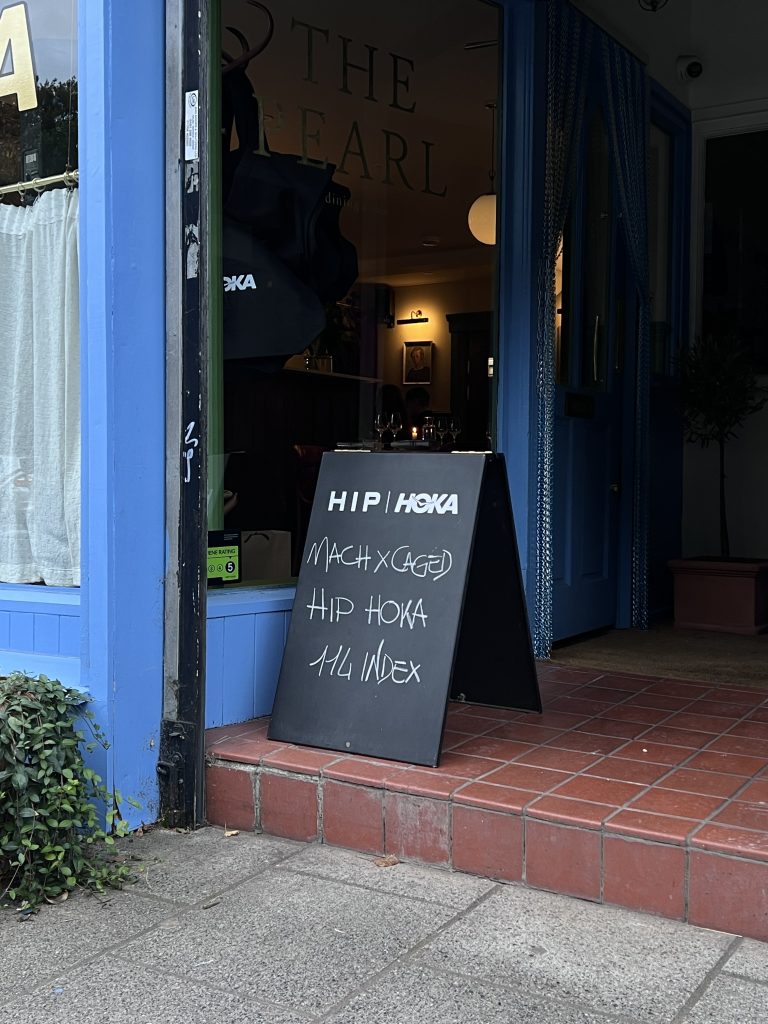 A
THE
PEARL
dini
HOKA
HIP | HOKA
MACH X CAGED
HIP HOKA
114 INDEX
ENE RATING
5